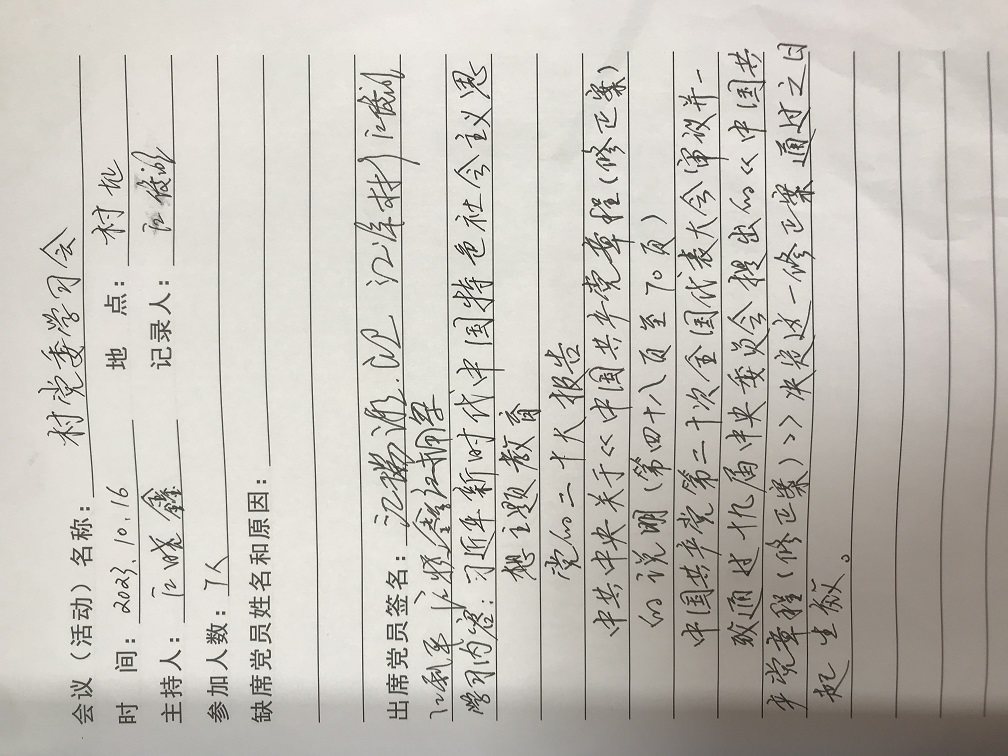 会议（活动）名称： 村党委学习会
时 间： 2023.10.16 地 点： 村址
主持人： 江晓鑫 记录人： 江俊波
参加人数： 7人
缺席党员姓名和原因：
出席党员签名： 江瑞源 江淮彬 江俊波
江利平 江晓鑫 江朝军
学习内容：习近平新时代中国特色社会主义思
想主题教育
党的二十大报告
中共中央关于《中国共产党章程(修正案)
的说明(第四十八页至70页)
中国共产党第二十次全国代表大会审议并一
致通过十九届中央委员会提出的《中国共
产党章程(修正案)》决定这一修正案通过之日
起生效。